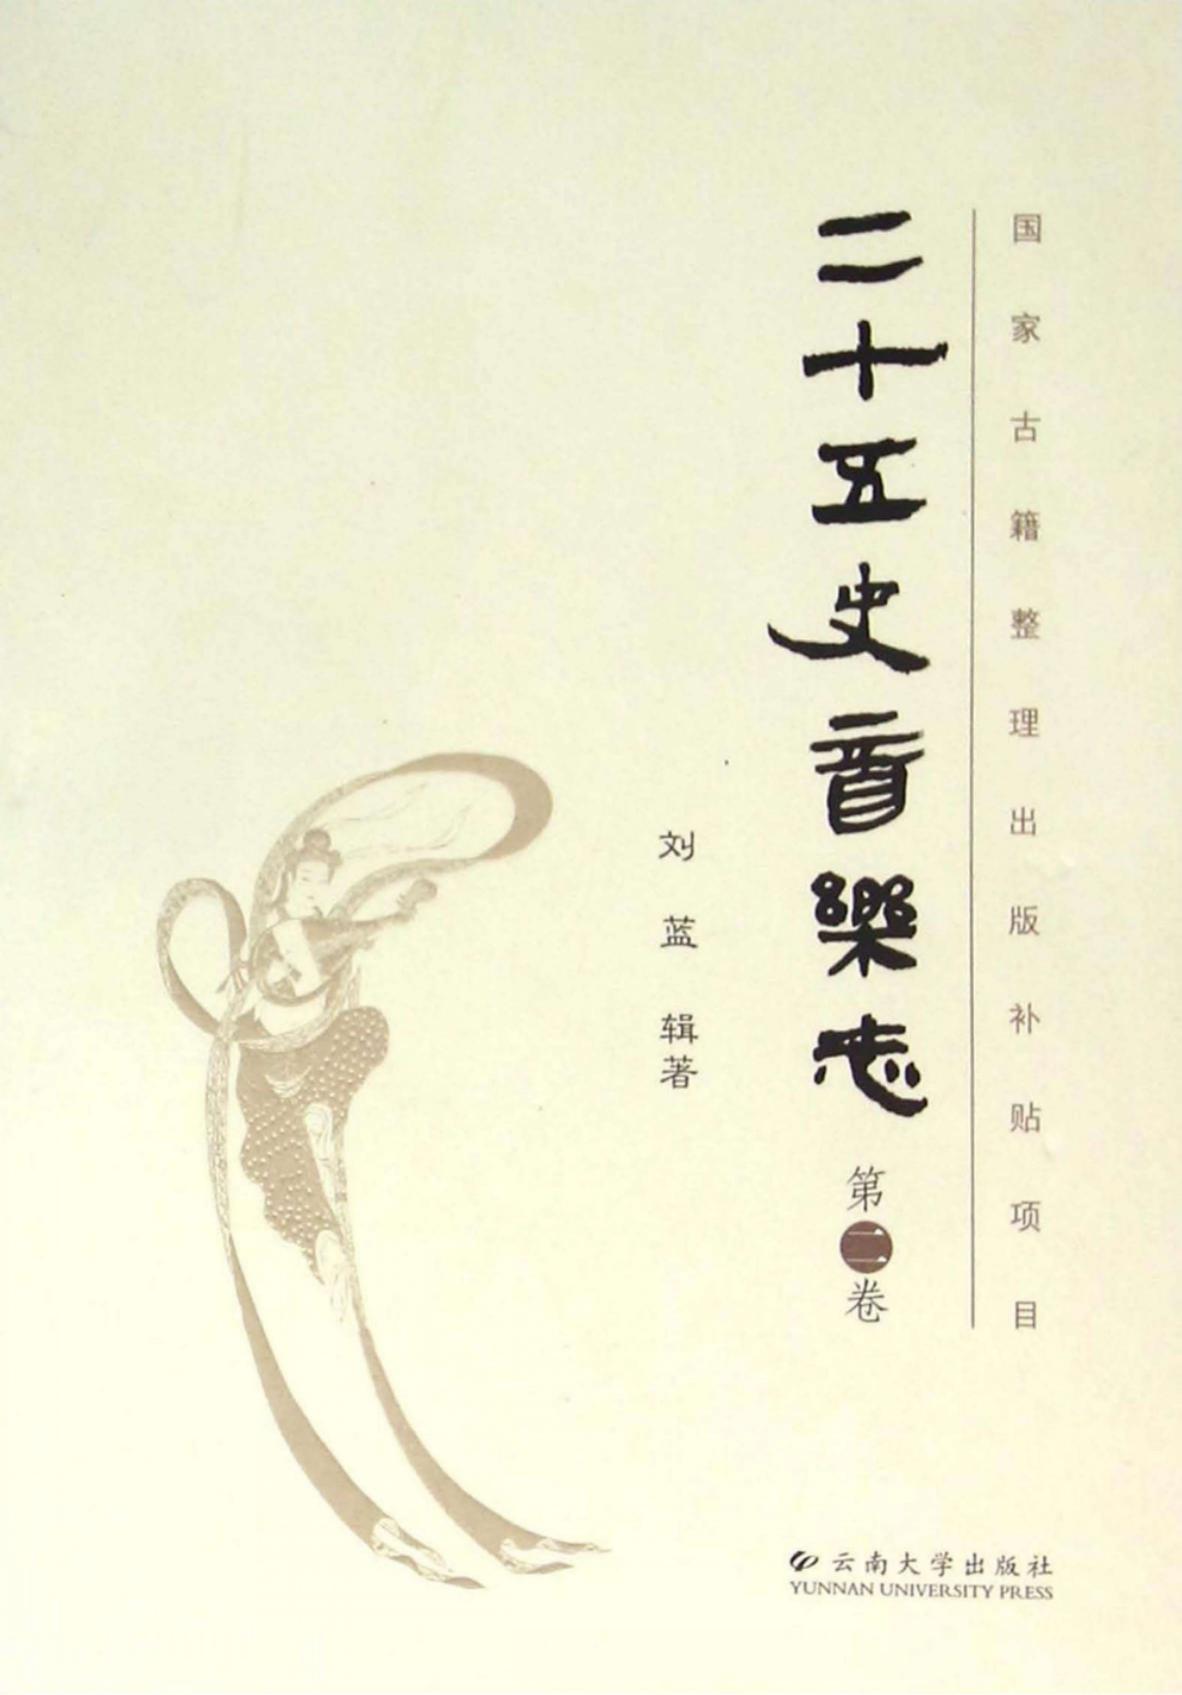 国家古籍整理出版补贴项目
二十五史音樂志
第二卷
刘蓝 辑著
云南大学出版社
YUNNAN UNIVERSITY PRESS